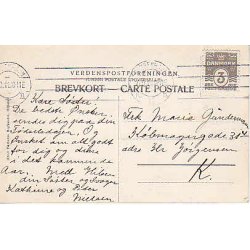 VERDENSPOSTFORENINGEN.
(UNION POSTALE UNIVERSELLE)
BREVKORT — CARTE POSTALE
DANMARK
3
Kære Søster!
De bedste Ønsker
sendes dig paa den
Fødselsdagen, Og
Ønsket om alt godt
for dig og dine
i det kommende
Aar. Med Hilsen
din Søster og Svoger
Kathrine og
Nielsen
Frk Maria
Købmagergade 38
adrs Hr Jörgensen
K.